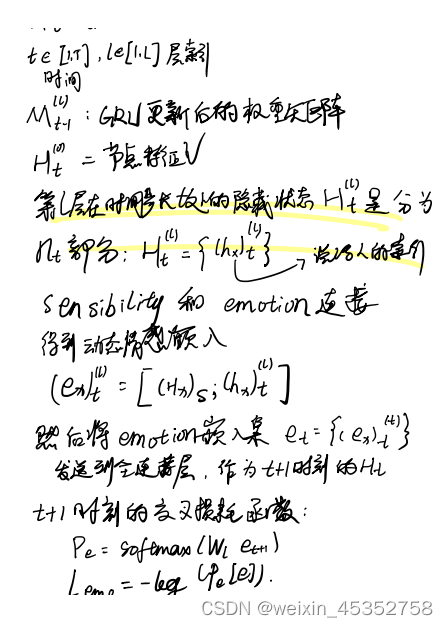 t∈[1,T], l∈[1,L] 层索引
时间
M_{t-1}^{(l)}: GRU更新后的权重矩阵
H_t^{(0)} = 节点特征V
第l层在时间步长放l的隐藏状态 H_t^{(l)} 是分为
n_t 部分: H_t^{(l)} = {(h_x)_t^{(l)}} → 说话人的索引
sensibility 和 emotion 连接
得到动态情感嵌入
(e_x)_t^{(l)} = [(H_x)_s; (h_x)_t^{(l)}]
然后将 emotion 嵌入集 e_t = {(e_x)_t^{(l)}}
发送到全连接层, 作为t+1时刻的H_t
t+1时刻的交叉损耗函数:
P_e = softmax(W_L e_{t+1})
L_{emo} = -log(P_e[e]).
CSDN @weixin_45352758